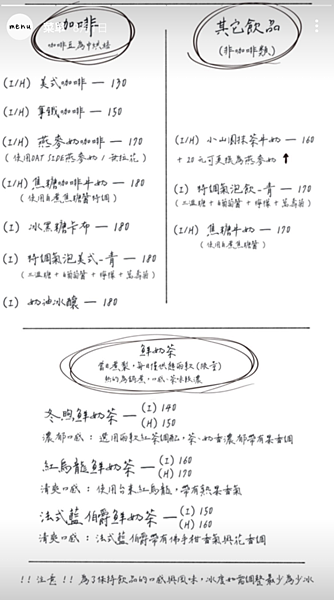 menu
咖啡
咖啡豆為中烘焙
(I/H) 美式咖啡 — 130
(I/H) 拿鐵咖啡 — 150
(I/H) 燕麥奶咖啡 — 170
(使用OAT SIDE燕麥奶 / 無拉花)
(I/H) 焦糖咖啡牛奶 — 180
(使用自煮焦糖醬特調)
(I) 冰黑糖卡布 — 180
(I) 特調氣泡美式-青 — 180
(三溫糖 + 白葡萄醬 + 檸檬 + 萬壽菊)
(I) 奶油冰釀 — 180
其它飲品
(非咖啡類)
(I/H) 小山園抹茶牛奶 — 160
+ 20 元可更換為燕麥奶 ↑
(I) 特調氣泡飲-青 — 170
(三溫糖 + 白葡萄醬 + 檸檬 + 萬壽菊)
(I/H) 焦糖牛奶 — 170
(使用自煮焦糖醬)
鮮奶茶
當日煮製，每日僅供應兩款(限量)
熱的為鍋煮，口感、茶味較濃
冬煦鮮奶茶 — (I) 140
(H) 150
濃郁口感：選用兩款紅茶調配，茶、奶香濃郁帶有果香調
紅烏龍鮮奶茶 — (I) 160
(H) 170
清爽口感：使用台東紅烏龍，帶有熟果香氣
法式藍伯爵鮮奶茶 — (I) 150
(H) 160
清爽口感：法式藍伯爵帶有佛手柑香氣與花香調
!! 注意 !! 為了保持飲品的口感與風味，冰度如需調整最少為少冰